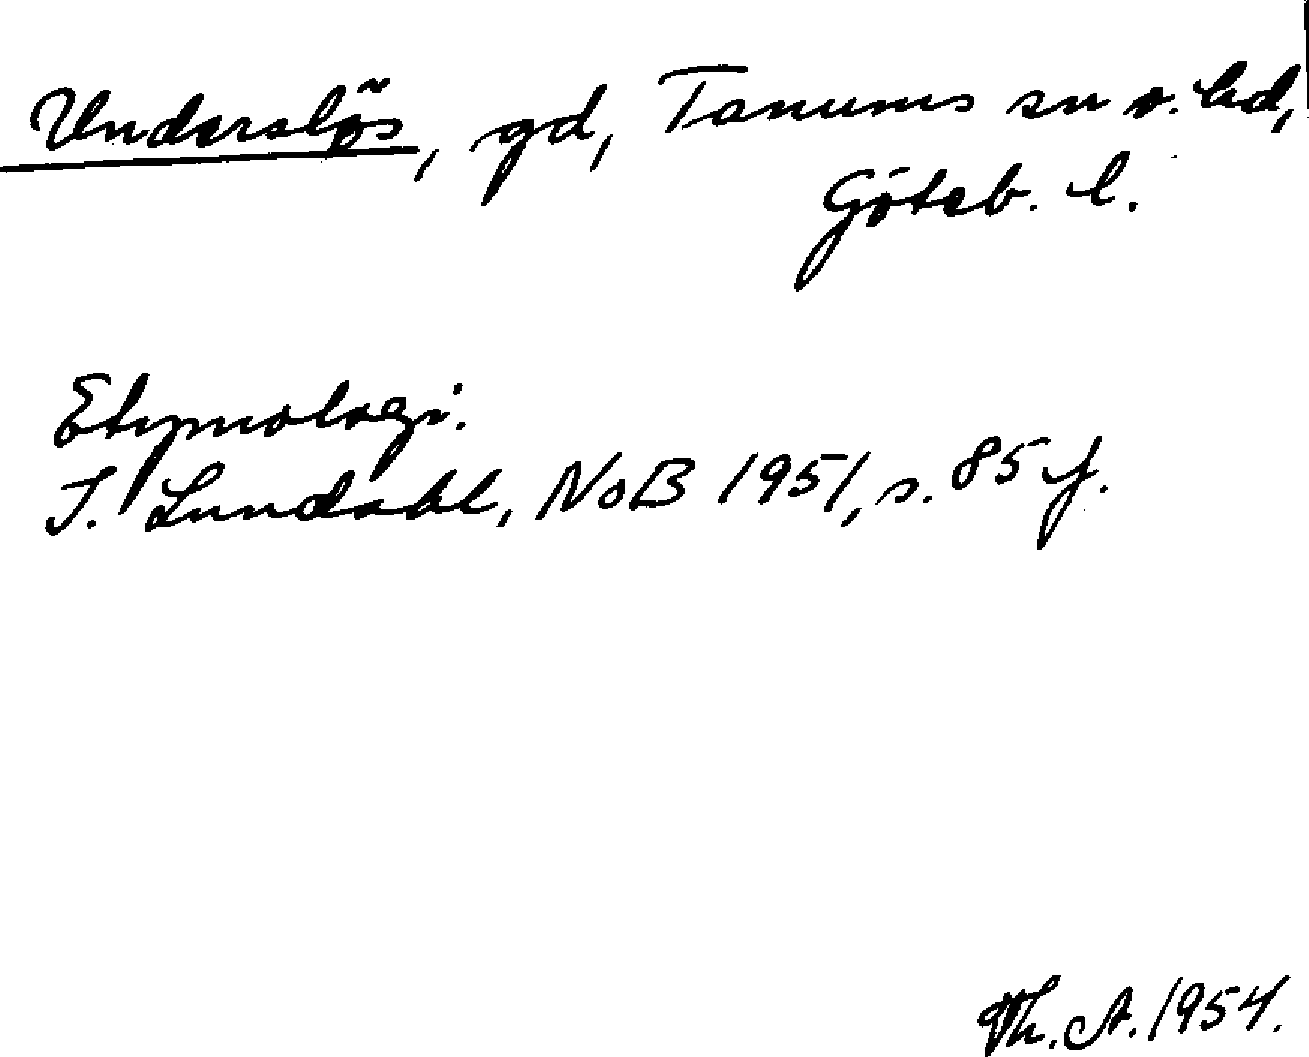 Underslös, gd, Tanums sn o. hd,
Göteb. l.
Etymologi.
I. Lundahl, NoB 1951, s. 85 f.
Th. A. 1954.